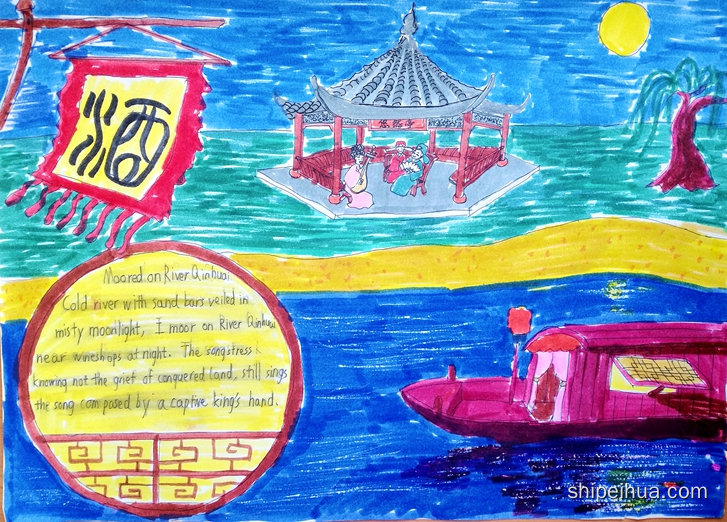 酒
Moored on River Qinhuai
Cold river with sand bars veiled in
misty moonlight, I moor on River Qinhuai
near wineshops at night. The songstress
knowing not the grief of conquered land, still sings
the song composed by a captive king's hand.
shipeihua.com